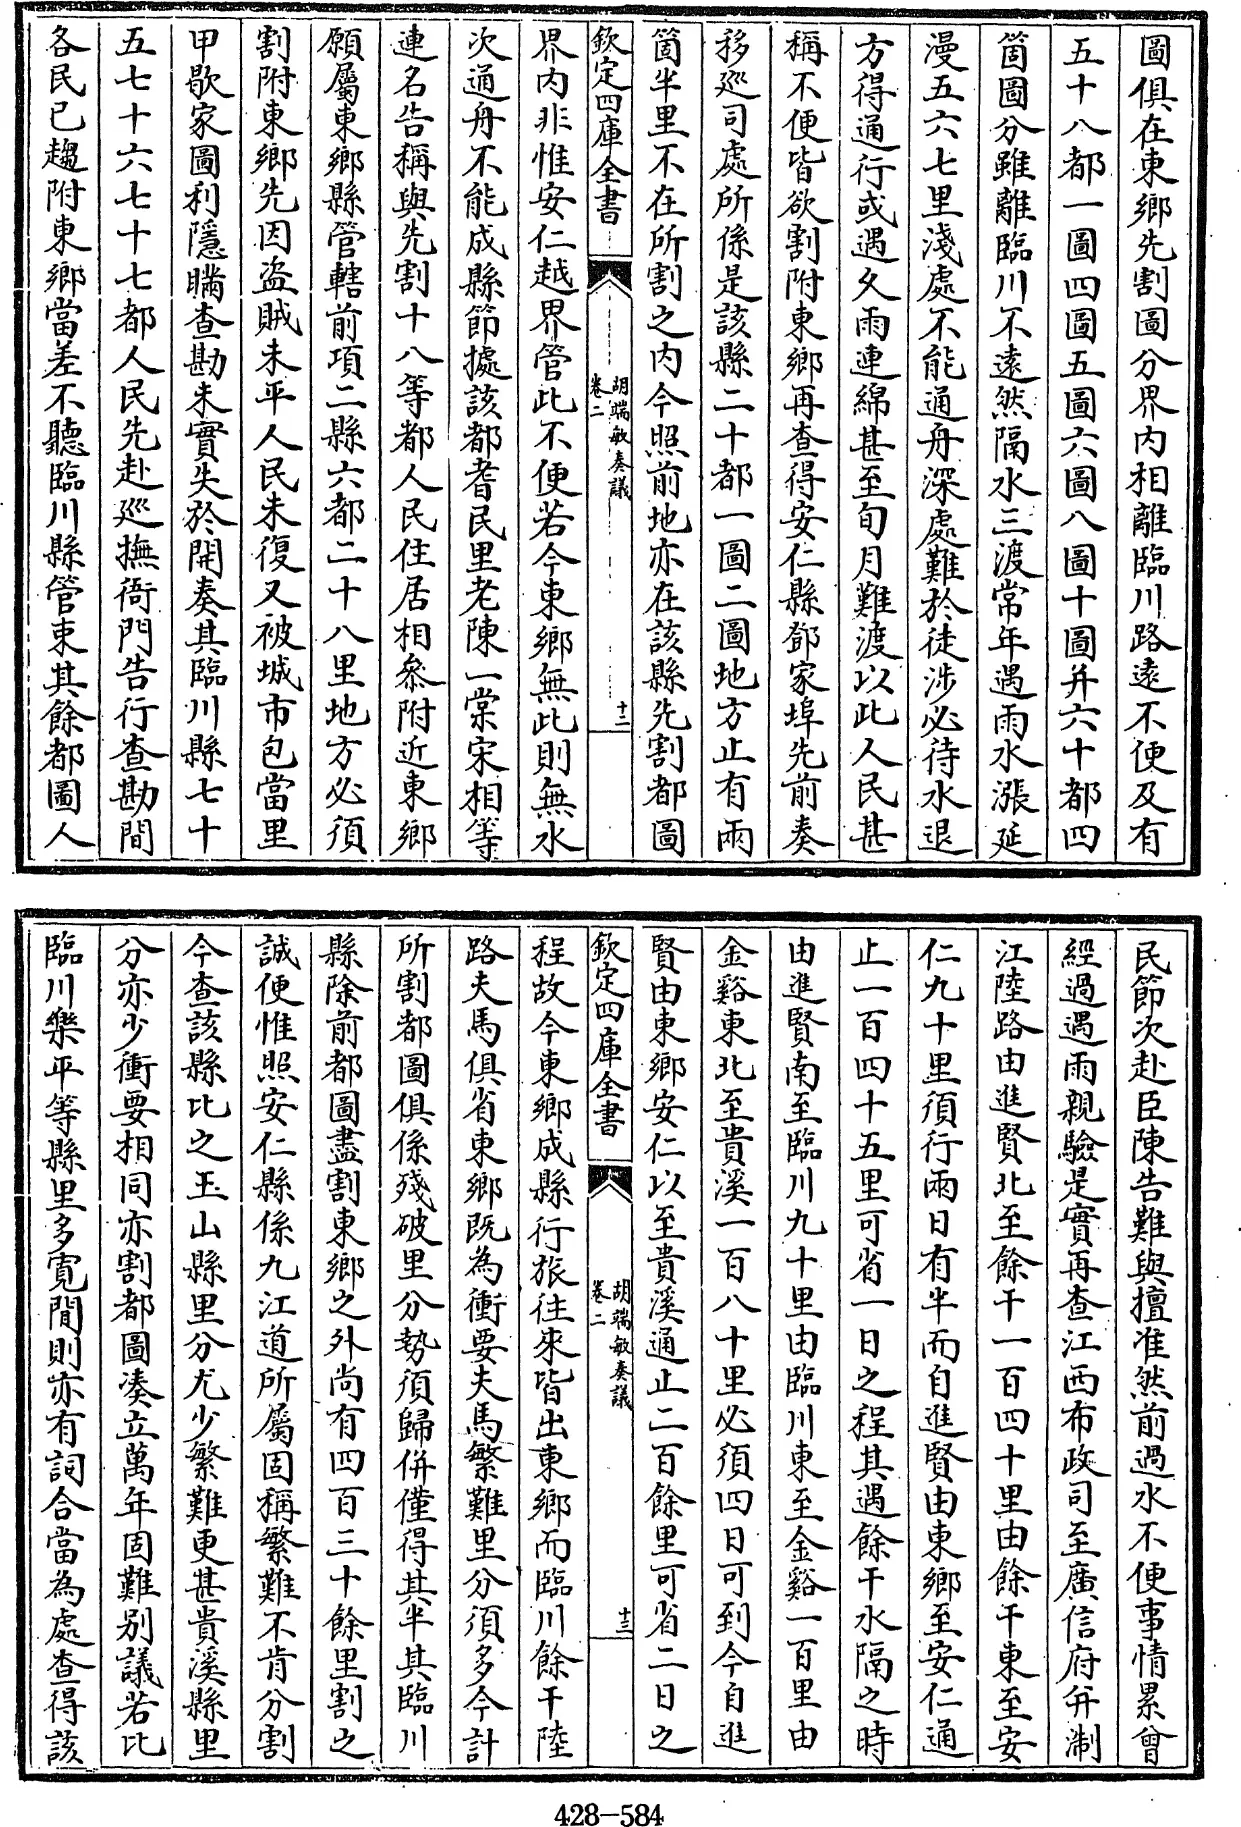 圖俱在東鄉先割圖分界内相離臨川路逺不便及有
五十八都一圖四圖五圖六圖八圖十圖并六十都四
箇圖分雖離臨川不逺然隔水三渡常年遇雨水漲延
漫五六七里淺處不能通舟深處難於徒涉必待水退
方得通行或遇久雨連綿甚至旬月難渡以此人民甚
稱不便皆欲割附東鄉再查得安仁縣鄧家埠先前奏
移廵司處所係是該縣二十都一圖二圖地方止有兩
箇半里不在所割之内今照前地亦在該縣先割都圖
欽定四庫全書
胡端敏奏議
卷二
十二
界内非惟安仁越界管此不便若今東鄉無此則無水
次通舟不能成縣節㨿該都耆民里老陳一棠宋相等
連名告稱與先割十八等都人民住居相叅附近東鄉
願屬東鄉縣管轄前項二縣六都二十八里地方必須
割附東鄉先因盜賊未平人民未復又被城市包當里
甲歇家圖利隱瞞查勘未實失於開奏其臨川縣七十
五七十六七十七都人民先赴廵撫衙門告行查勘間
各民已趨附東鄉當差不聽臨川縣管束其餘都圖人
民節次赴臣陳告難與擅准然前過水不便事情累曾
經過遇雨親驗是實再查江西布政司至廣信府并浙
江陸路由進賢北至餘干一百四十里由餘干東至安
仁九十里須行兩日有半而自進賢由東鄉至安仁通
止一百四十五里可省一日之程其遇餘干水隔之時
由進賢南至臨川九十里由臨川東至金谿一百里由
金谿東北至貴溪一百八十里必須四日可到今自進
賢由東鄉安仁以至貴溪通止二百餘里可省二日之
欽定四庫全書
胡端敏奏議
卷二
十三
程故今東鄉成縣行旅往來皆出東鄉而臨川餘干陸
路夫馬俱省東鄉既為衝要夫馬繁難里分須多今計
所割都圖俱係殘破里分勢須歸併僅得其半其臨川
縣除前都圖盡割東鄉之外尚有四百三十餘里割之
誠便惟照安仁縣係九江道所屬固稱繁難不肯分割
今查該縣比之玉山縣里分尤少繁難更甚貴溪縣里
分亦少衝要相同亦割都圖凑立萬年固難別議若比
臨川樂平等縣里多寛閒則亦有詞合當為處查得該
428-584